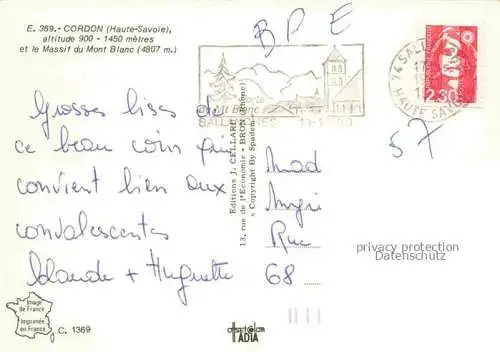 E. 369.- CORDON (Haute-Savoie),
altitude 900 - 1450 mètres
et le Massif du Mont Blanc (4807 m.)
B P E
Porte
du Mt Blanc
SALLANCHES
74 SALL
HAUTE SAVOIE
2,30
57
Grosses bises de
ce beau coin qui
convient bien aux
convalescentes
Yolande + Huguette
Editions J. CELLARD
13, rue de l'Economie - BRON (Rhône)
« Copyright By Spadem »
Mad
Rue
68
privacy protection
Datenschutz
Image
de France
Imprimée
en France
C. 1369
ADIA